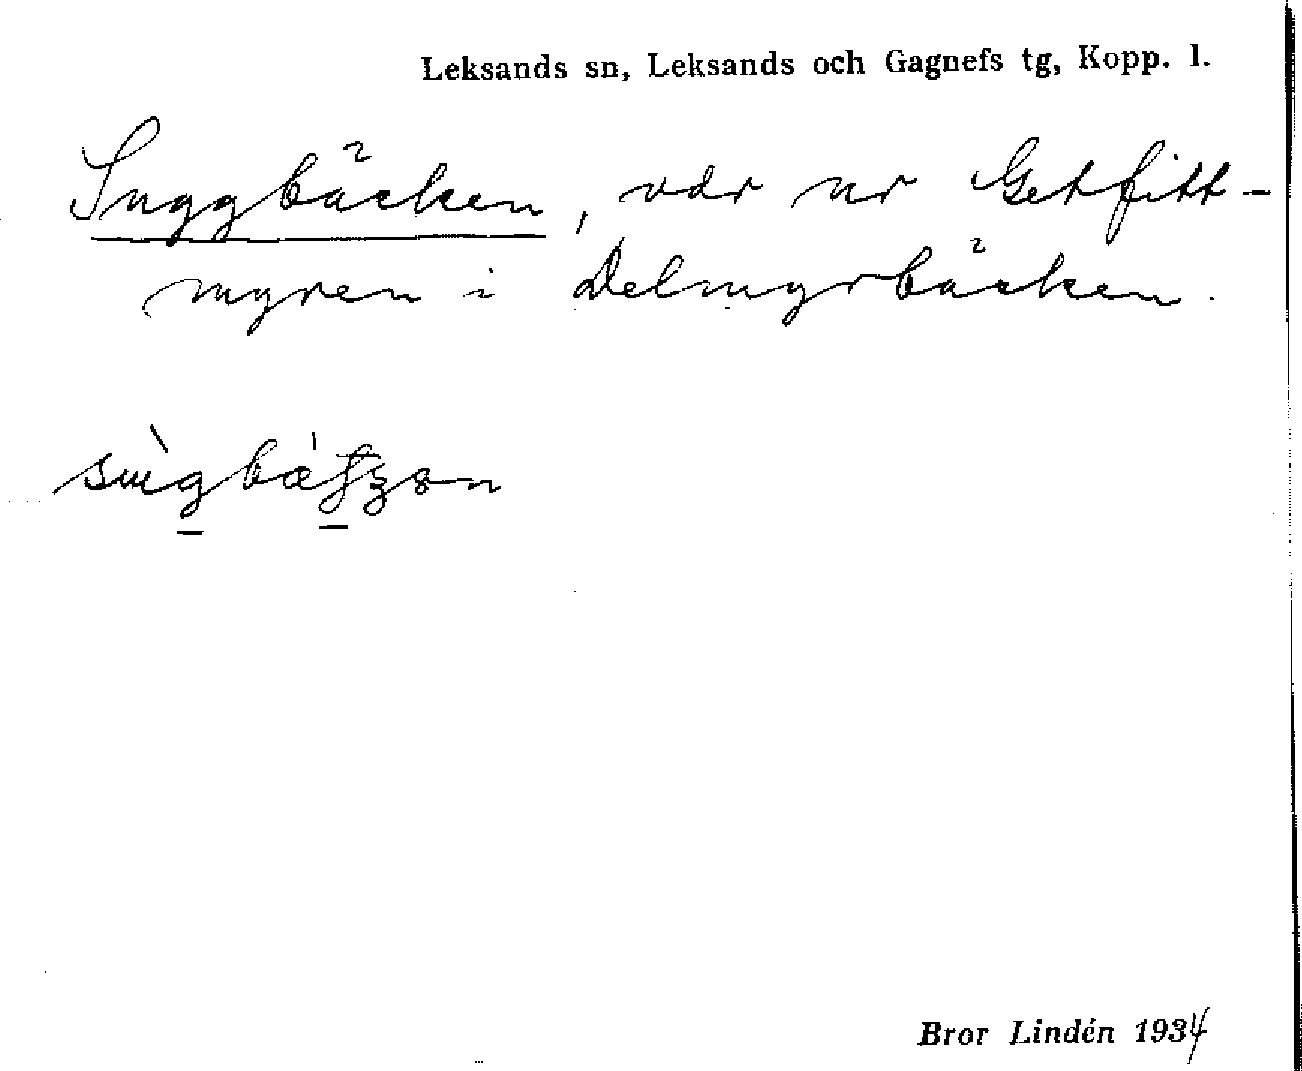 Leksands sn, Leksands och Gagnefs tg, Kopp. l.
Suggbäcken, vdr ur Getfitt-
myren i Delmyrbäcken.
Bror Lindén 1934